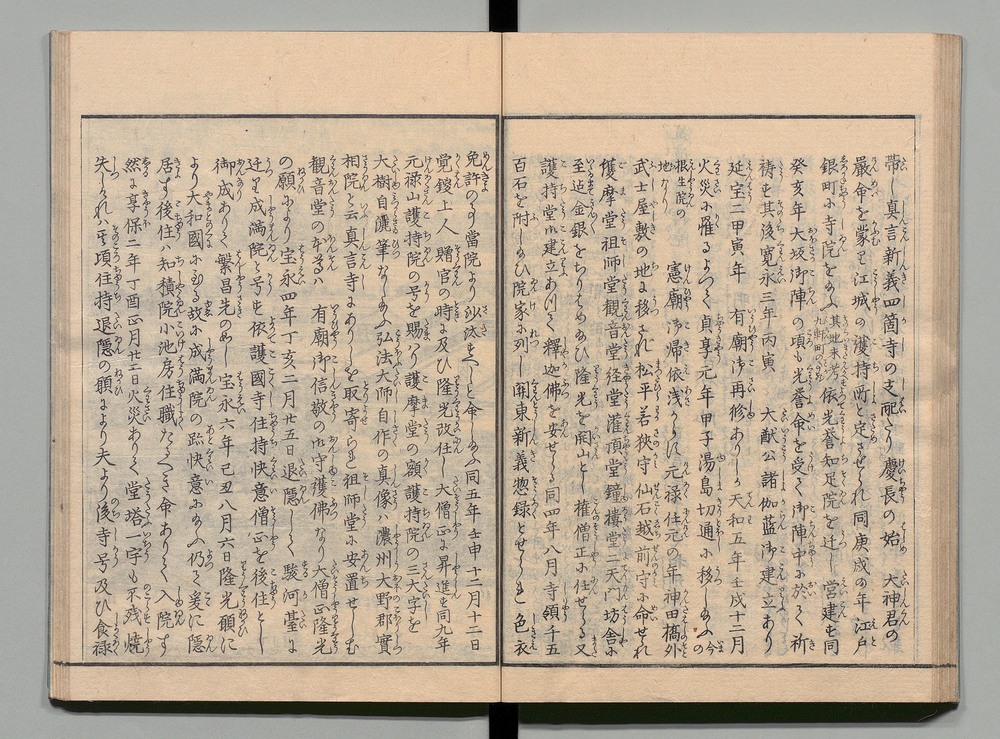 帯し真言新義四箇寺の支配たり慶長の始　大神君の
嚴命を蒙り江城の護持所と定させられ同庚戌の年江戸
銀町に寺院をたまふ依光誉知足院を迁し営建も同
癸亥年大坂御陣の頃も光誉命を受て御陣中に於て祈
祷も其後寛永三年丙寅　大猷公諸伽藍御建立あり
延宝二甲寅年　有廟御再修ありしか天和五年壬戌十二月
火災に罹るよつて貞享元年甲子湯島切通に移したまふ今の
根生院の地なり　憲廟御帰依浅からす元禄住元の年神田橋外
武士屋敷の地に移され松平若狭守仙石越前守に命せられ
護摩堂祖師堂観音堂経堂灌頂堂鐘楼堂二天門坊舎に
至迄金銀をちりはめたまひ隆光を開山とし権僧正に任せらる又
護持堂御建立ありて釋迦佛を安せらる同四年八月寺領千五
百石を附したまひ院家に列し関東新義惣録とせられ色衣
免許の事當院より沙汰すへしと命したまふ同五年壬申十二月十二日
覚鑁上人贈官の時に及ひ隆光改住し大僧正に昇進も同九年
元禄山護持院の号を賜り護摩堂の額護持院の三大字を
大樹自灑筆なしたまふ弘法大師自作の真像ハ濃州大野郡實
相院と云真言寺にありしを取寄られ祖師堂に安置せしむ
観音堂の本尊ハ　有廟御信敬の御守護佛なり大僧正隆光
の願により宝永四年丁亥二月廿五日退隠して駿河臺に
迁り成満院と号も依護國寺住持快意僧正を後住とし
御成ありて繁昌先のめし宝永六年己丑八月六日隆光願に
より大和國にもむる故に成満院の跡快意にたまふ仍て爰に隠
居す後住ハ知積院小池房住職たるへき命ありて入院す
然に享保二年丁酉正月廿二日火災ありて堂塔一宇も不残焼
失しけれハ其頃住持退隠の願により夫より後寺号及ひ食禄